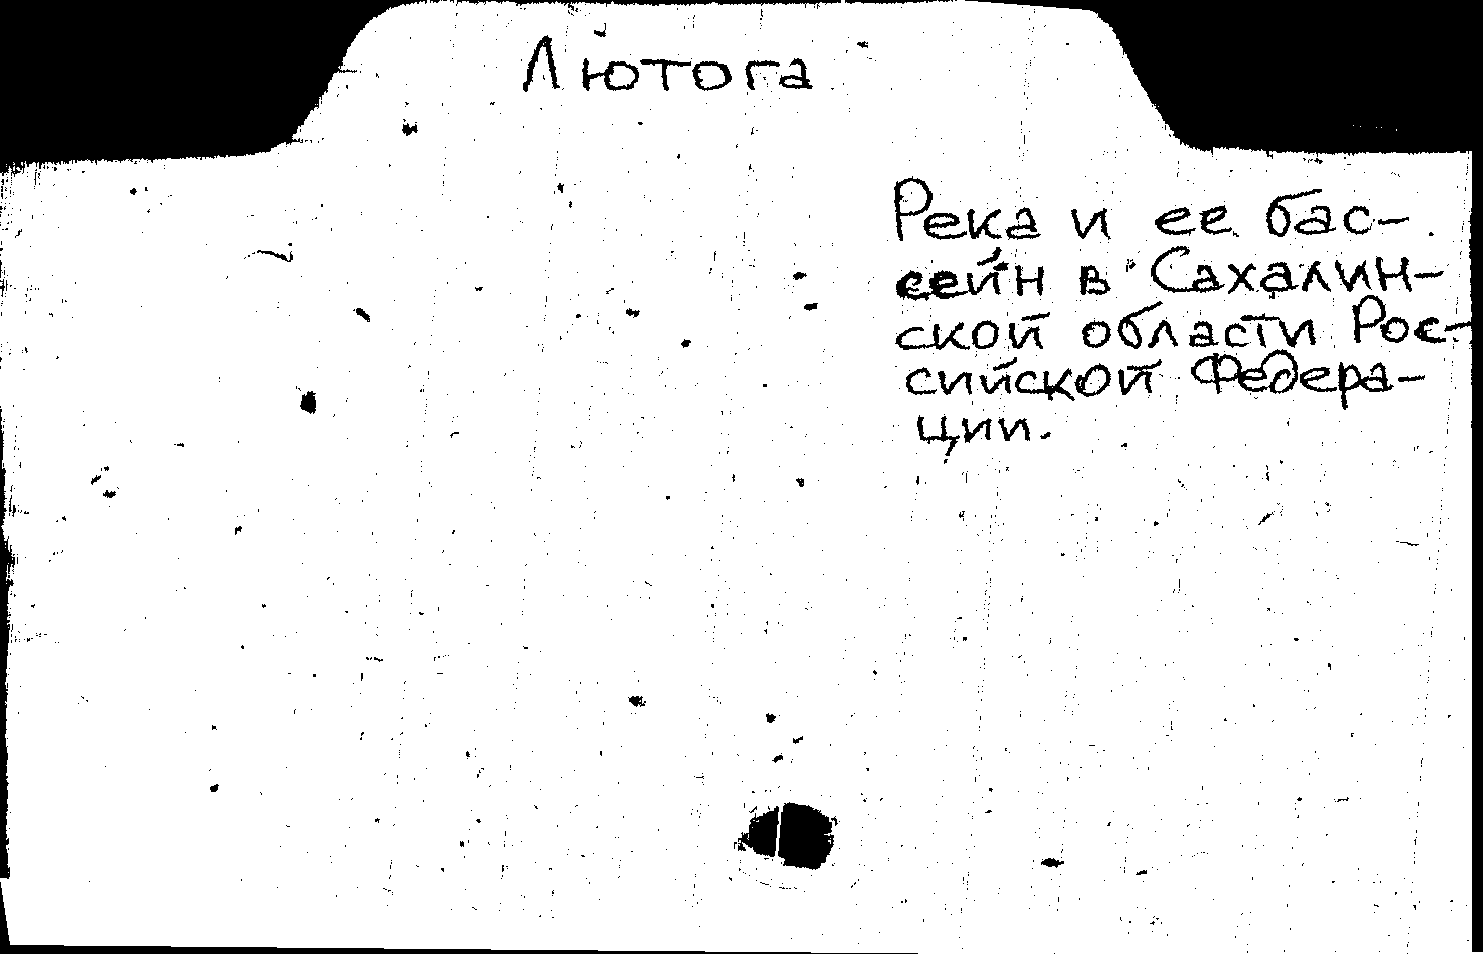 Лютога
Река и ее бас-
сейн в Сахалин-
ской области Рос-
сийской Федера-
ции.